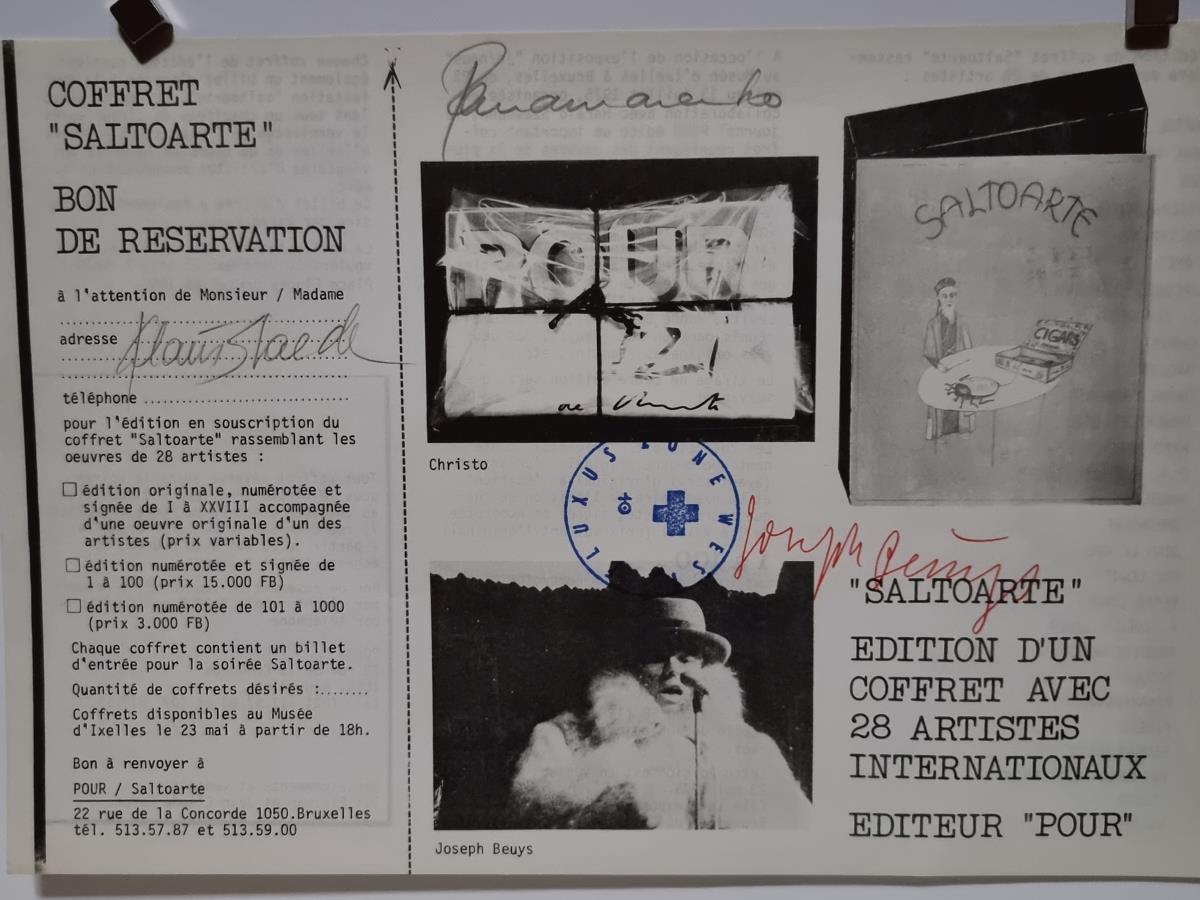 COFFRET
"SALTOARTE"
BON
DE RESERVATION
à l'attention de Monsieur / Madame
adresse
Klaus Staeck
téléphone
pour l'édition en souscription du
coffret "Saltoarte" rassemblant les
oeuvres de 28 artistes :
édition originale, numérotée et
signée de I à XXVIII accompagnée
d'une oeuvre originale d'un des
artistes (prix variables).
édition numérotée et signée de
1 à 100 (prix 15.000 FB)
édition numérotée de 101 à 1000
(prix 3.000 FB)
Chaque coffret contient un billet
d'entrée pour la soirée Saltoarte.
Quantité de coffrets désirés :........
Coffrets disponibles au Musée
d'Ixelles le 23 mai à partir de 18h.
Bon à renvoyer à
POUR / Saltoarte
22 rue de la Concorde 1050.Bruxelles
tél. 513.57.87 et 513.59.00
Panamarenko
POUR
Christo
LUXUS ZONE WEST
Joseph Beuys
SALTOARTE
CIGARS
Joseph Beuys
"SALTOARTE"
EDITION D'UN
COFFRET AVEC
28 ARTISTES
INTERNATIONAUX
EDITEUR "POUR"